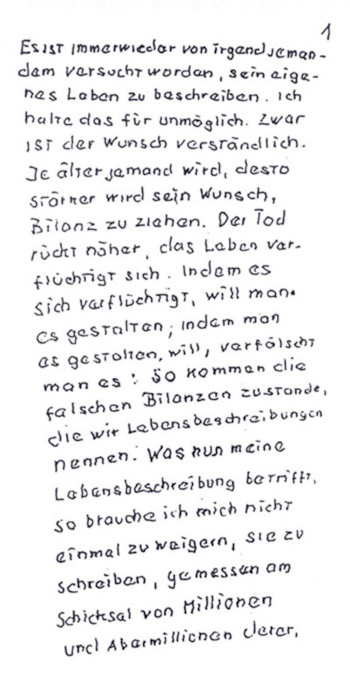 1
Es ist immer wieder von irgendjeman-
dem versucht worden, sein eige-
nes Leben zu beschreiben. Ich
halte das für unmöglich. Zwar
ist der Wunsch verständlich.
Je älter jemand wird, desto
stärker wird sein Wunsch,
Bilanz zu ziehen. Der Tod
rückt näher, das Leben ver-
flüchtigt sich. Indem es
sich verflüchtigt, will man
es gestalten; indem man
es gestalten, will, verfälscht
man es: So kommen die
falschen Bilanzen zustande,
die wir Lebensbeschreibungen
nennen. Was nun meine
Lebensbeschreibung betrifft,
so brauche ich mich nicht
einmal zu weigern, sie zu
schreiben, gemessen am
Schicksal von Millionen
und Abermillionen derer,